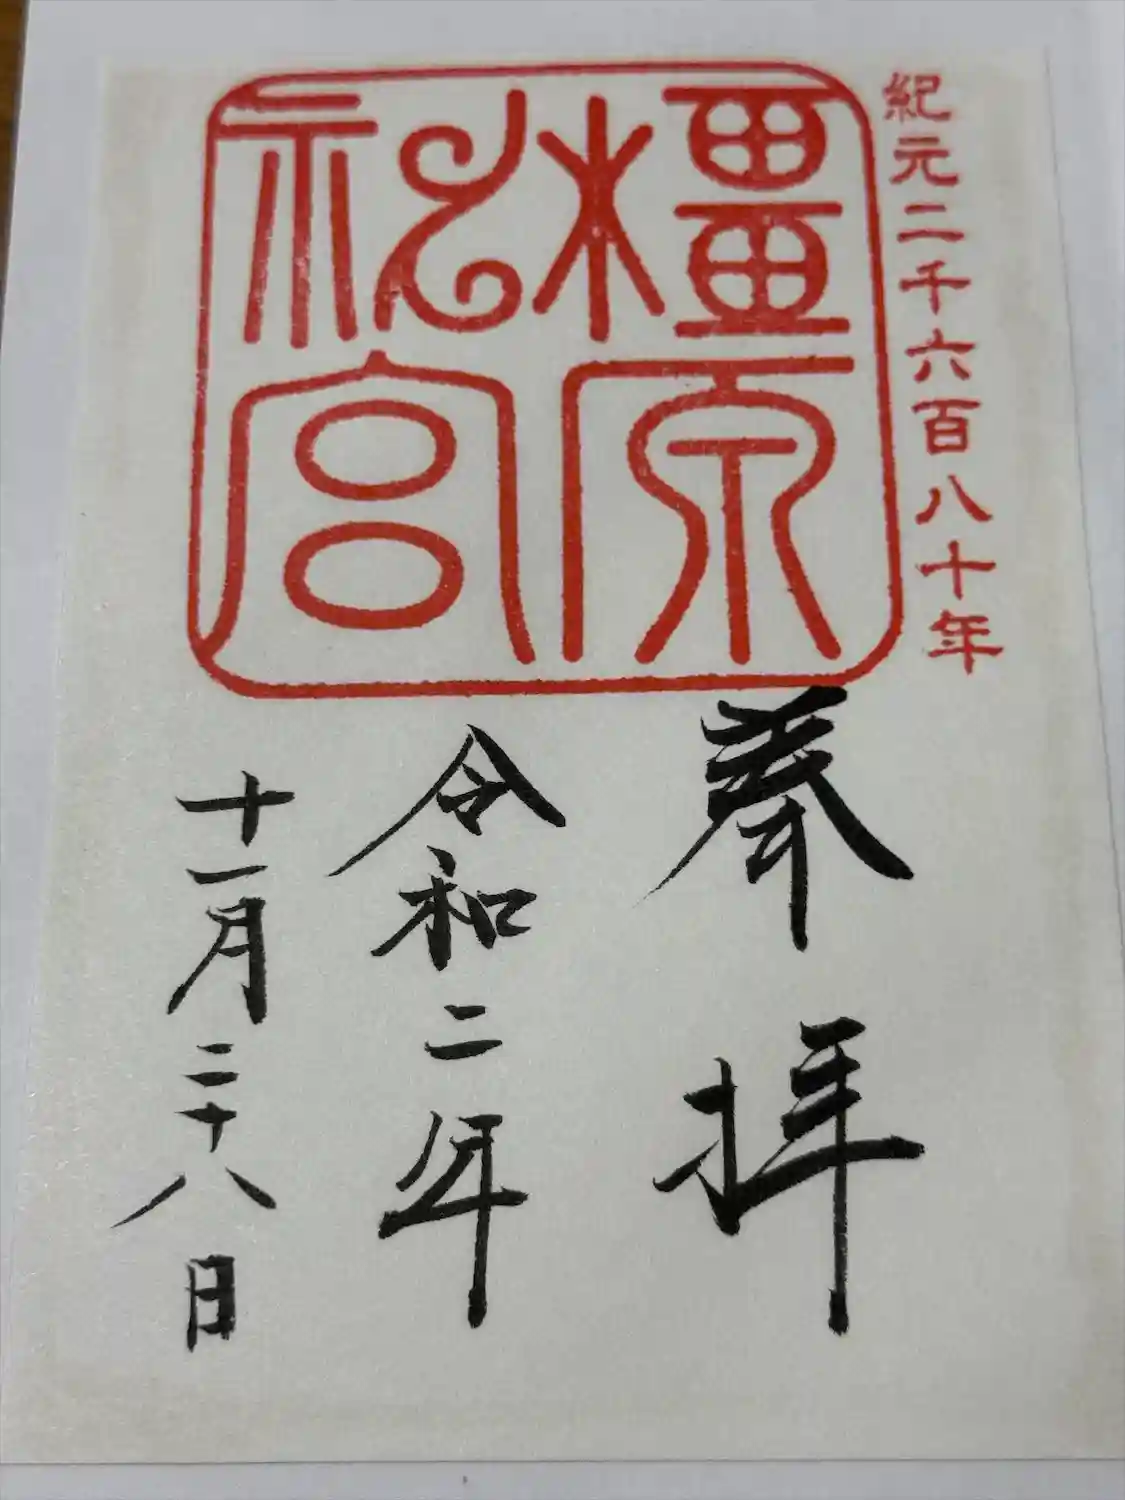 紀元二千六百八十年
橿原
神宮
奉拝
令和二年
十一月二十八日